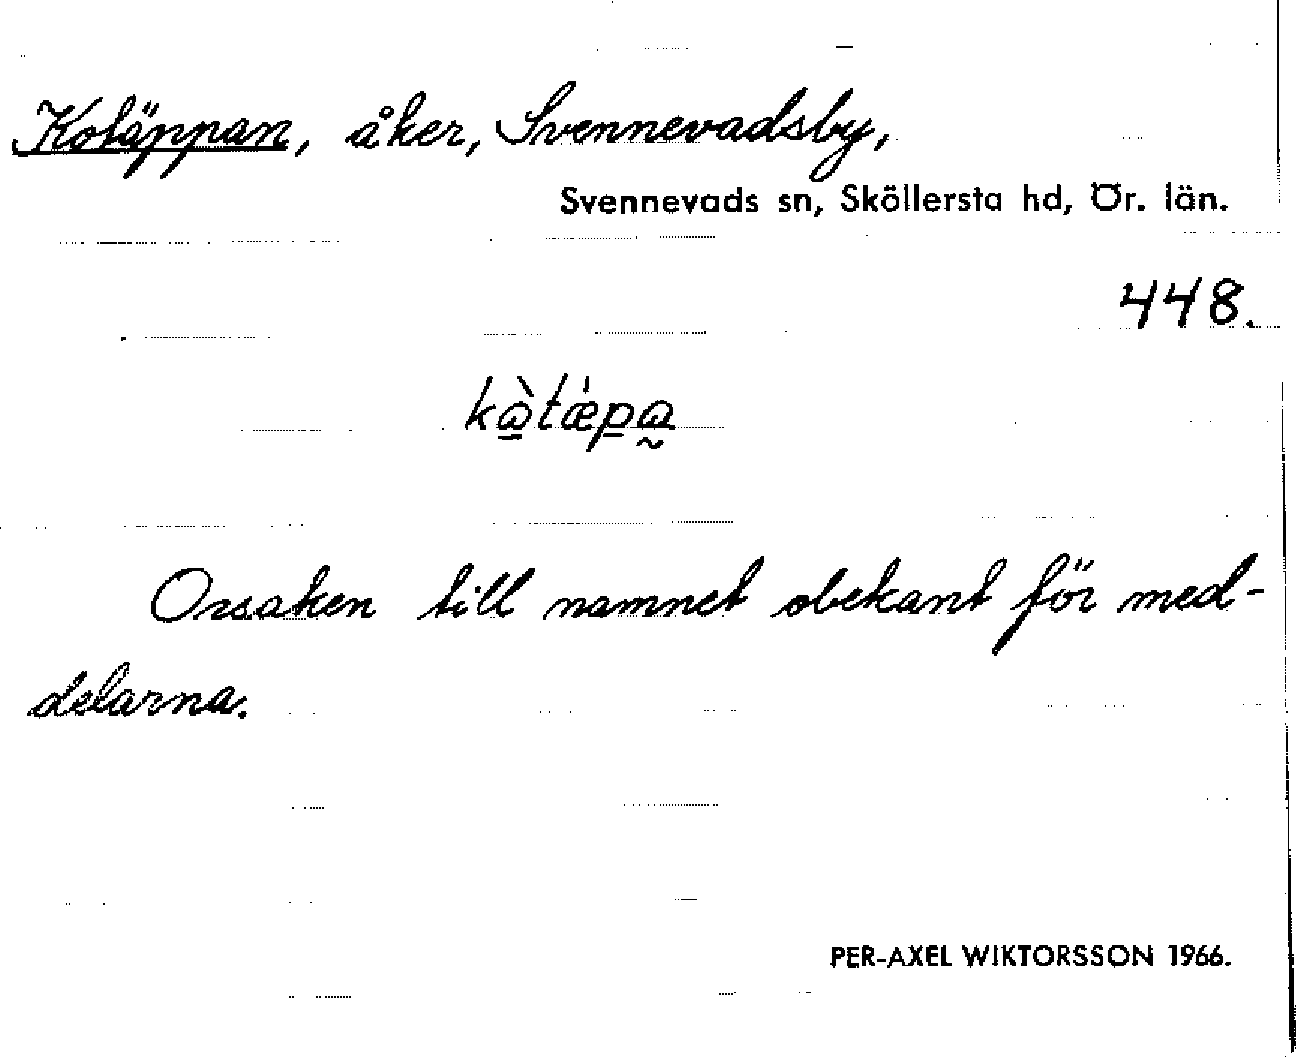 Kotäppan, åker, Svennevadsby,
Svennevads sn, Sköllersta hd, Ör. län.
448.
kⱥ̀tæ̍pⱥ
Orsaken till namnet obekant för med-
delarna.
PER-AXEL WIKTORSSON 1966.